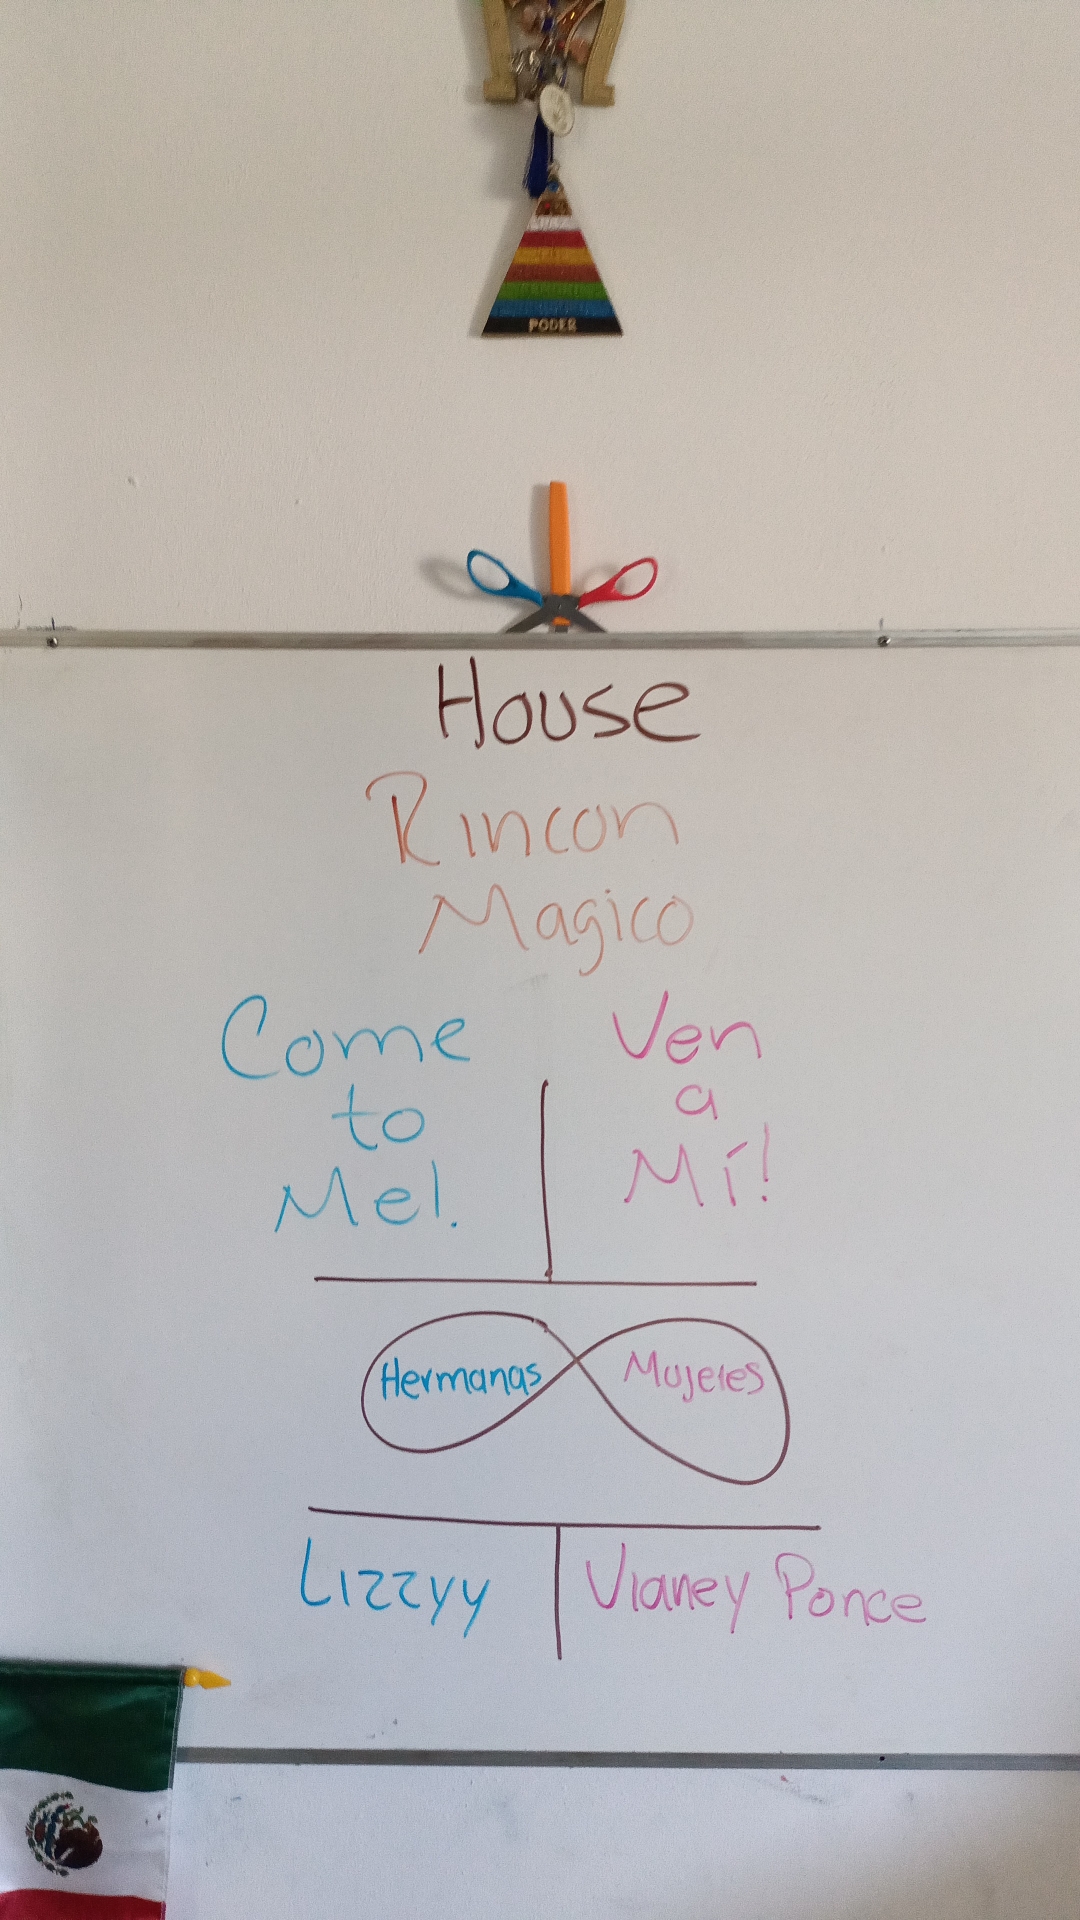 PODER
House
Rincon
Magico
Come
to
Me!.
Ven
a
Mí!
Hermanas
Mujeres
Lizzyy
Vianey Ponce